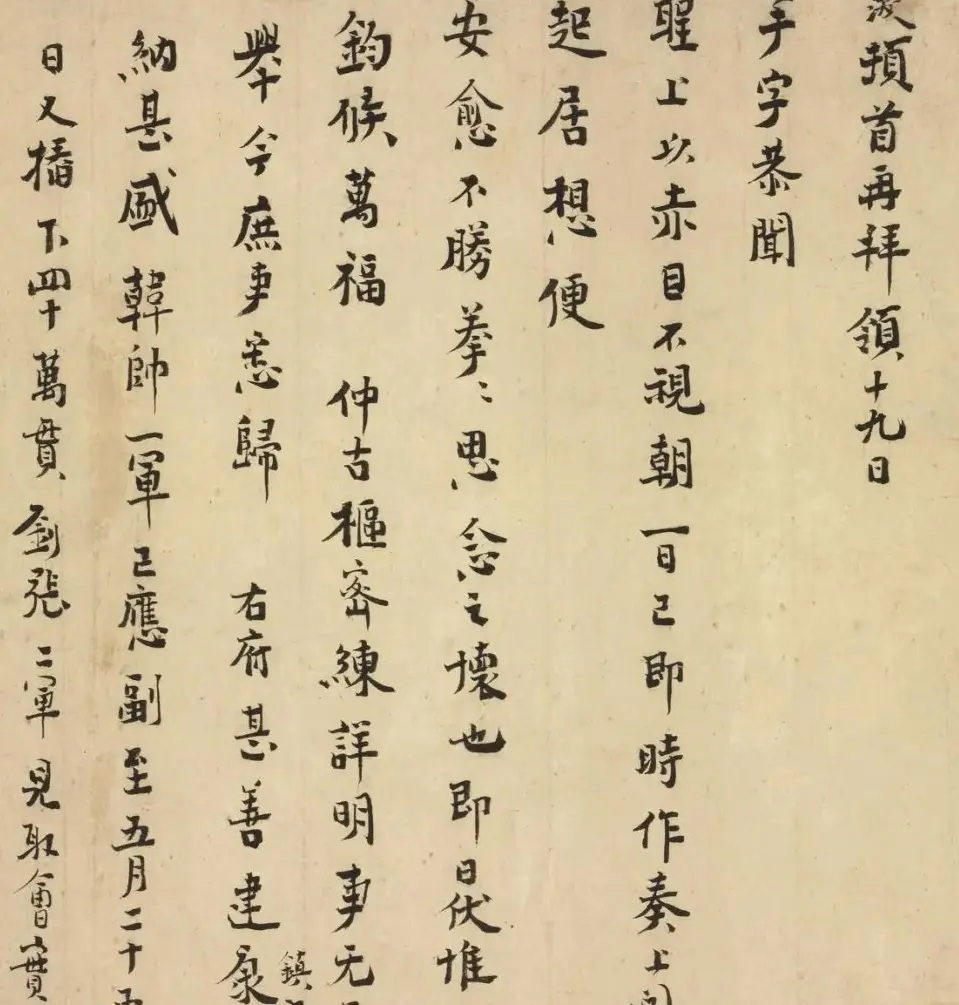 頓首再拜領十九日
手字恭聞
聖上以赤目不視朝一日已即時作奏上
起居想便
安愈不勝拳〻思念之懷也即日伏惟
鈞候萬福 仲古樞密練詳明事无
舉今庶事悉歸 右府甚善建康鎮
納甚盛 韓帥一軍已應副至五月二十
日又樁下四十萬貫劉張二軍見取會實